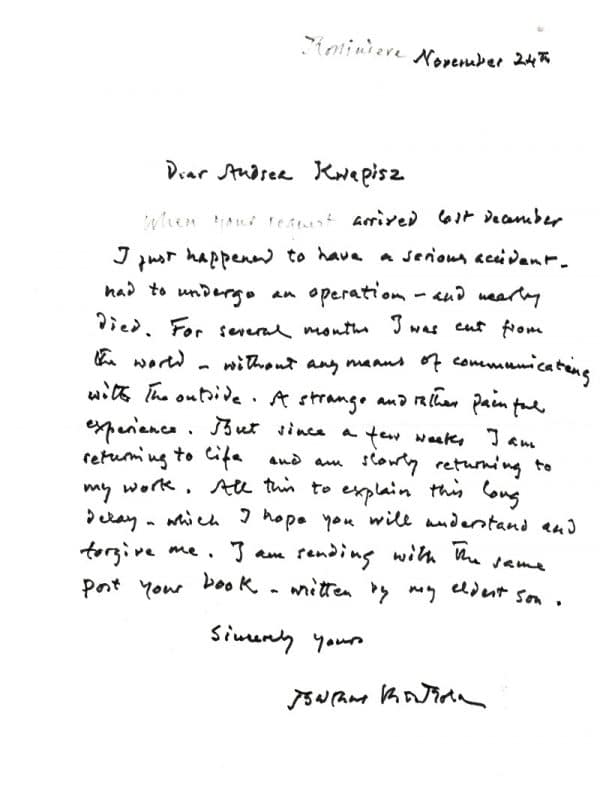 Rossinière November 24th
Dear Andrea Kwapisz
When your request arrived last December
I just happened to have a serious accident -
had to undergo an operation - and nearly
died. For several months I was cut from
the world - without any means of communicating
with the outside. A strange and rather painful
experience. But since a few weeks I am
returning to life and am slowly returning to
my work. All this to explain this long
delay - which I hope you will understand and
forgive me. I am sending with the same
post your book - written by my eldest son.
Sincerely yours
Balthus